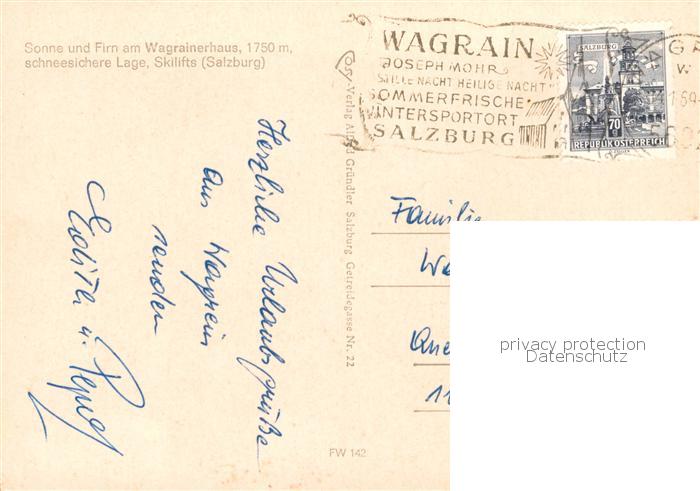 Sonne und Firn am Wagrainerhaus, 1750 m,
schneesichere Lage, Skilifts (Salzburg)
WAGRAIN
JOSEPH MOHR
STILLE NACHT HEILIGE NACHT
SOMMERFRISCHE
WINTERSPORTORT
SALZBURG
SALZBURG
70
REPUBLIK ÖSTERREICH
Cosy-Verlag Alfred Gründler Salzburg Getreidegasse Nr. 22
Herzliche Urlaubsgrüße
aus Wagrein
senden
Edith u.
Familie
We
Que
11
FW 142
privacy protection
Datenschutz